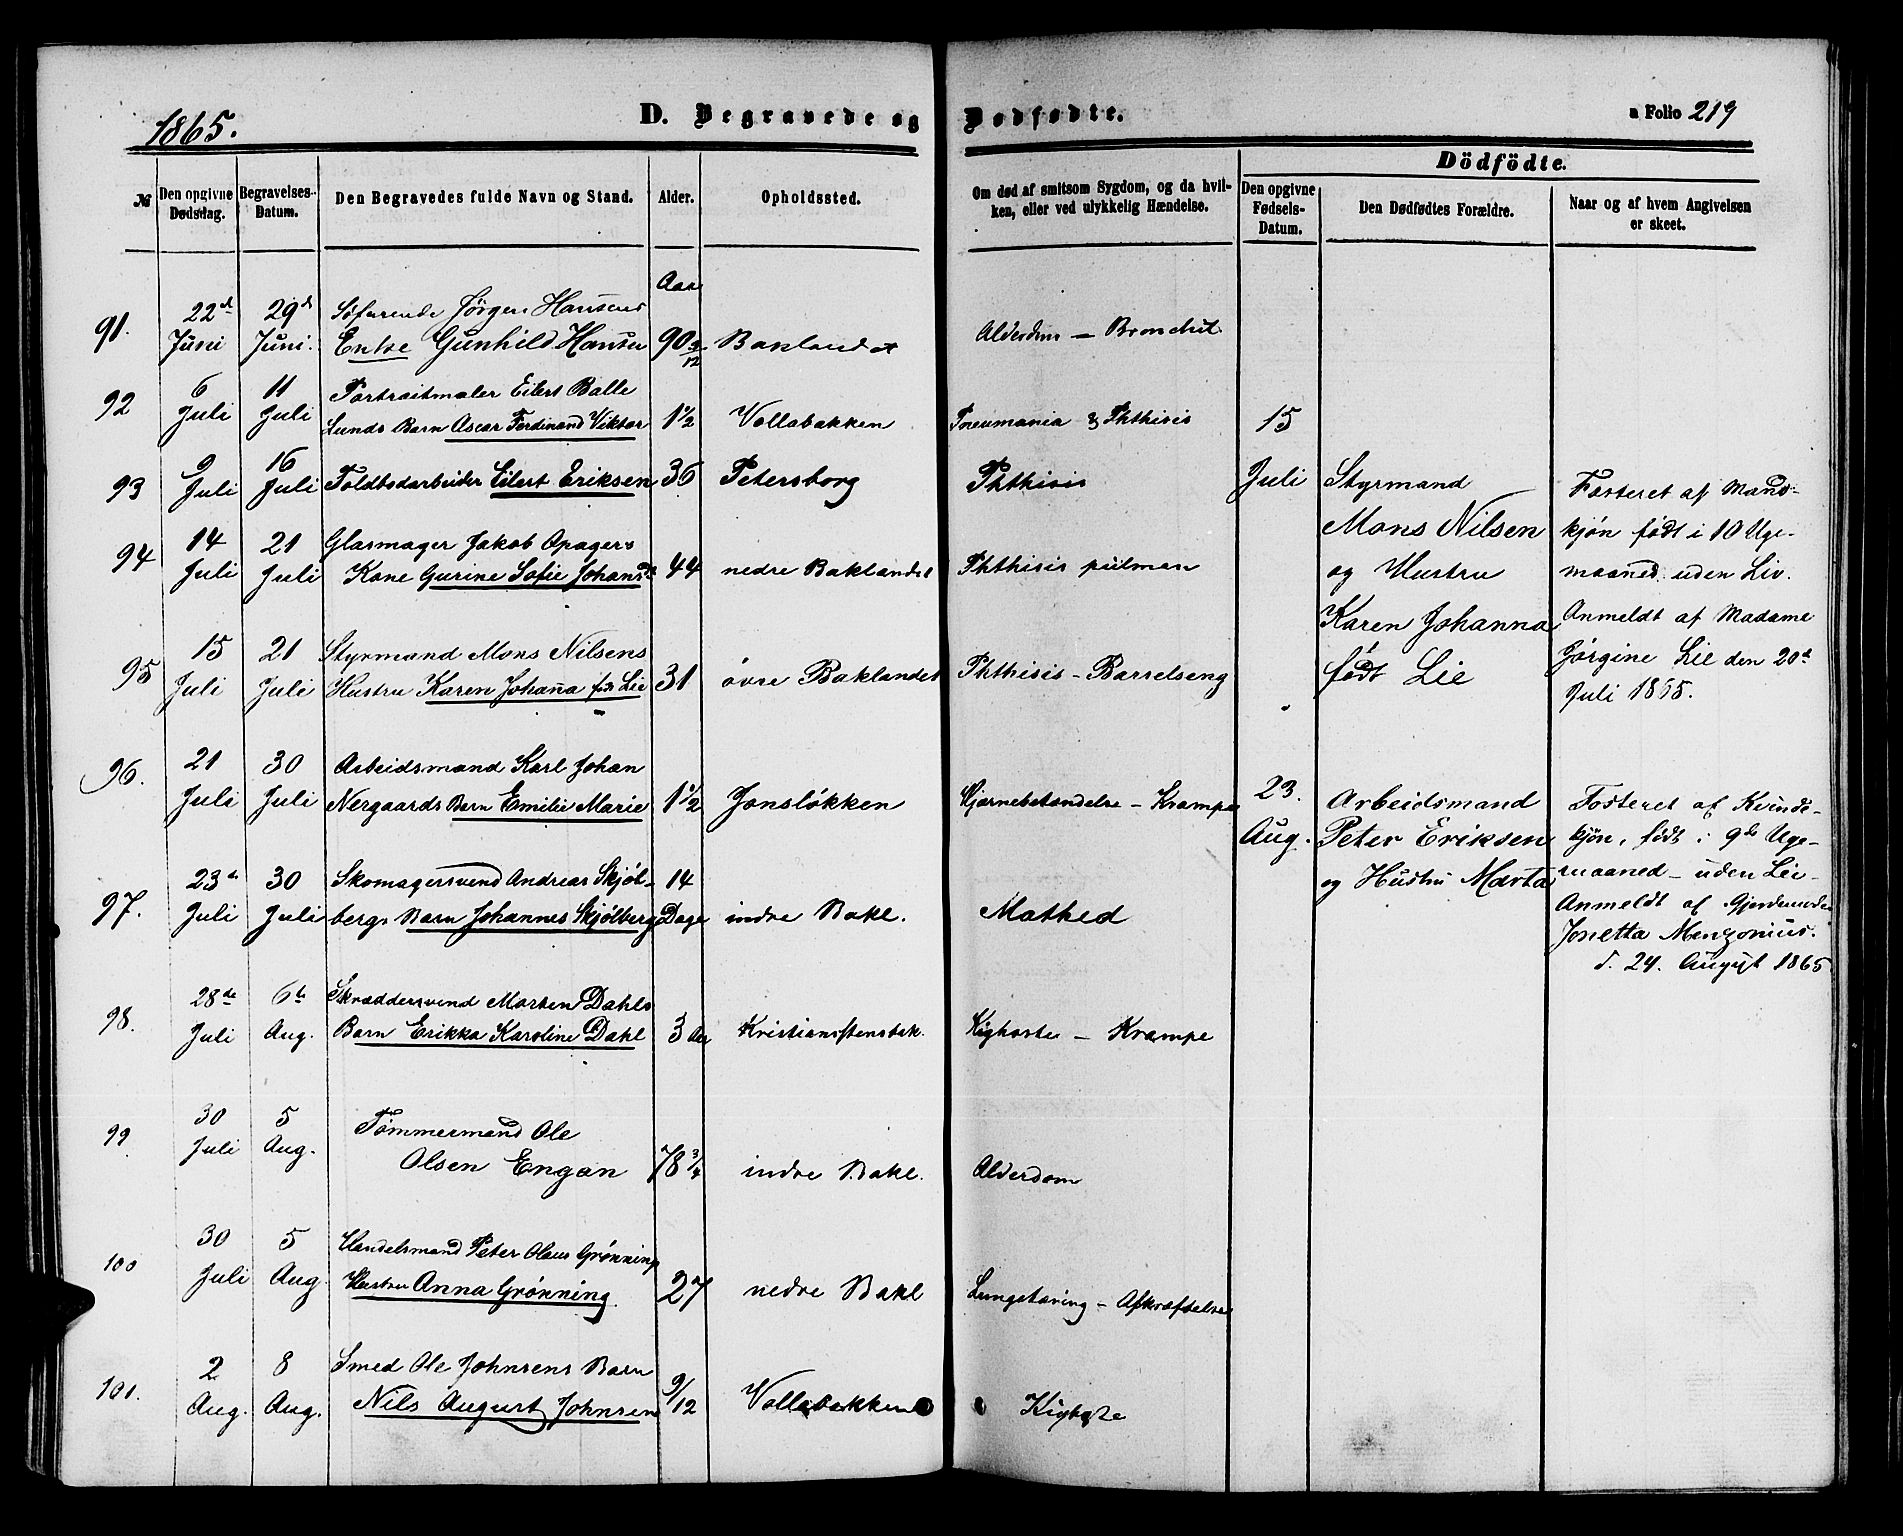 1865.
D. Begravede og Dødfødte.
a Folio 219
Dödfödte.
№
Den opgivne Dødsdag.
Begravelses-Datum.
Den Begravedes fulde Navn og Stand.
Alder.
Opholdssted.
Om død af smitsom Sygdom, og da hvil-
ken, eller ved ulykkelig Hændelse.
Den opgivne Fødsels-Datum.
Den Dødfødtes Forældre.
Naar og af hvem Angivelsen
er skeet.
Aar
91. 22d Juni 29d Juni. Søfarende Jørgen Hansens
Enke Gunhild Hansen 90 3/12 Baklandet Alderdom – Bronchit.
92 6 Juli 11 Juli Portraitmaler Eilert Balle
Lunds Barn Ascar Ferdinand Viktor 1 1/2 Vollabakken Pneumania & Phthisis
93 9 Juli 16 Juli Toldbodarbeider Eilert Eriksen 36 Petersborg Phthisis
94 14 Juli 21 Juli Glasmager Jakob Apagers
Kone Gurine Sofie Johansd 44 nedre Baklandet Phthisis pulmon
95 15 Juli 21 Juli Styrmand Mons Nilsens
Hustru Karen Johana fød Lie 31 øvre Baklandet Phthisis – Barselseng
96. 21 Juli 30 Juli Arbeidsmand Karl Johan
Nergaards Barn Emilie Marie 1 1/2 Jonsløkken Hjernebetendelse – Krampe
97. 23d Juli 30 Juli Skomagersvend Andreas Skjøl-
bergs Barn Johannes Skjølberg 14 Dage indre Bakl. Mathed
98. 28de Juli 6te Aug. Skræddersvend Morten Dahls
Barn Erikka Karoline Dahl 3 Aar Kristianstensbak. Kighoste – Krampe
99 30 Juli 5 Aug. Tømmermand Ole
Olsen Engan 78 3/4 indre Bakl. Alderdom
100 30 Juli 5 Aug. Handelsmand Peter Olaus Grønning
Hustru Anna Grønning 27 nedre Bakl Lungetæring – Afkræftelse
101. 2 Aug. 8 Aug. Smed Ole Johnsens Barn
Nils August Johnsen 9/12 Vollabakken Kighoste
15
Juli
Styrmand
Mons Nilsen
og Hustru
Karen Johanna
født Lie
Fosteret af Mands-
kjøn født i 10 Uge-
maaned uden Liv.
Anmeldt af Madame
Jørgine Lie den 20d
Juli 1865.
23.
Aug.
Arbeidsmand
Peter Eriksen
og Hustru Marta
Fosteret af Kvinde-
kjøn, født i 9de Uge-
maaned – uden Liv.
Anmeldt af Gjordemoder
Jonetta Menzonius.
d. 24. August 1865